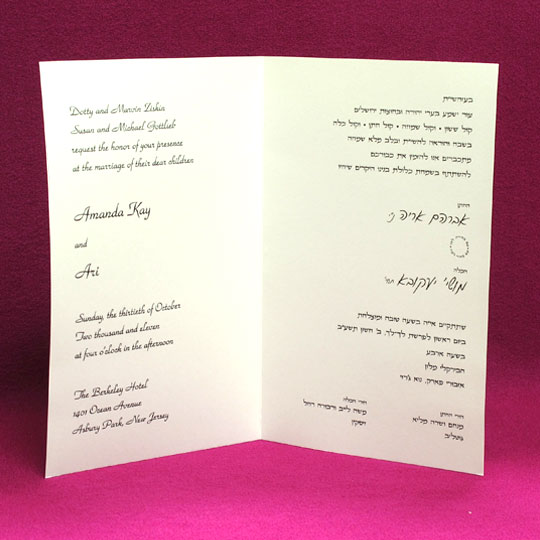 Dotty and Marvin Ziskin
Susan and Michael Gottlieb
request the honor of your presence
at the marriage of their dear children
Amanda Kay
and
Ari
Sunday, the thirtieth of October
Two thousand and eleven
at four o'clock in the afternoon
The Berkeley Hotel
1401 Ocean Avenue
Asbury Park, New Jersey
בעזהשי״ת
עוד ישמע בערי יהודה ובחוצות ירושלים
קול ששון • וקול שמחה • קול חתן • וקול כלה
בשבח והודאה להשי״ת ובלב מלא שמחה
מתכבדים אנו להזמין את כבודכם
להשתתף בשמחת כלולת בנינו היקרים שיחיו
החתן
אברהם אריה ני
הכלה
מושי יעקובא תחי
שתתקיים אי״ה בשעה טובה ומוצלחת
ביום ראשון לפרשת לך־לך, ב׳ חשון תשע״ב
בשעה ארבע
הבירקלי מלון
אזבורי פארק, נוא ג׳רזי
הורי החתן
מנחם ושרה מליא
גוטליב
הורי הכלה
משה לייב ודבורה רחל
זיסקין